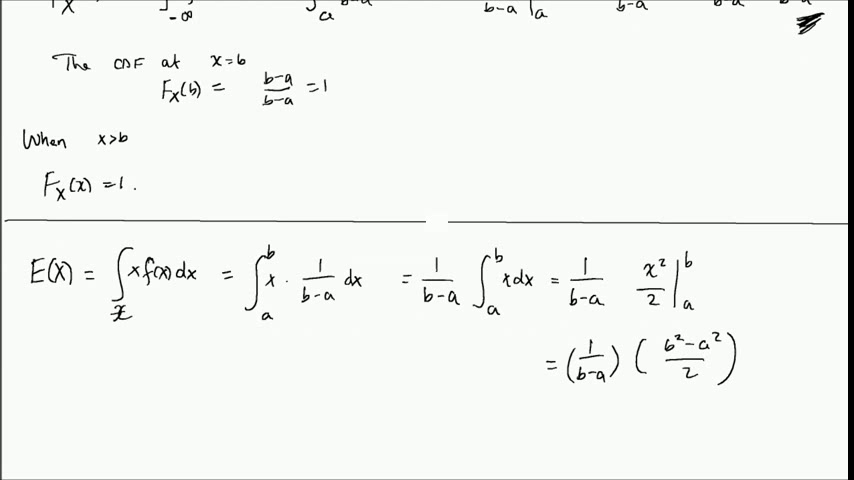 F_X -∞ a b-a b-a |_a b-a b-a b-a
The CDF at x=b
F_X(b) = (b-a)/(b-a) = 1
When x>b
F_X(x) = 1.
E(X) = ∫_𝒳 x f(x) dx = ∫_a^b x · 1/(b-a) dx = 1/(b-a) ∫_a^b x dx = 1/(b-a) x²/2 |_a^b
= (1/(b-a)) ((b²-a²)/2)